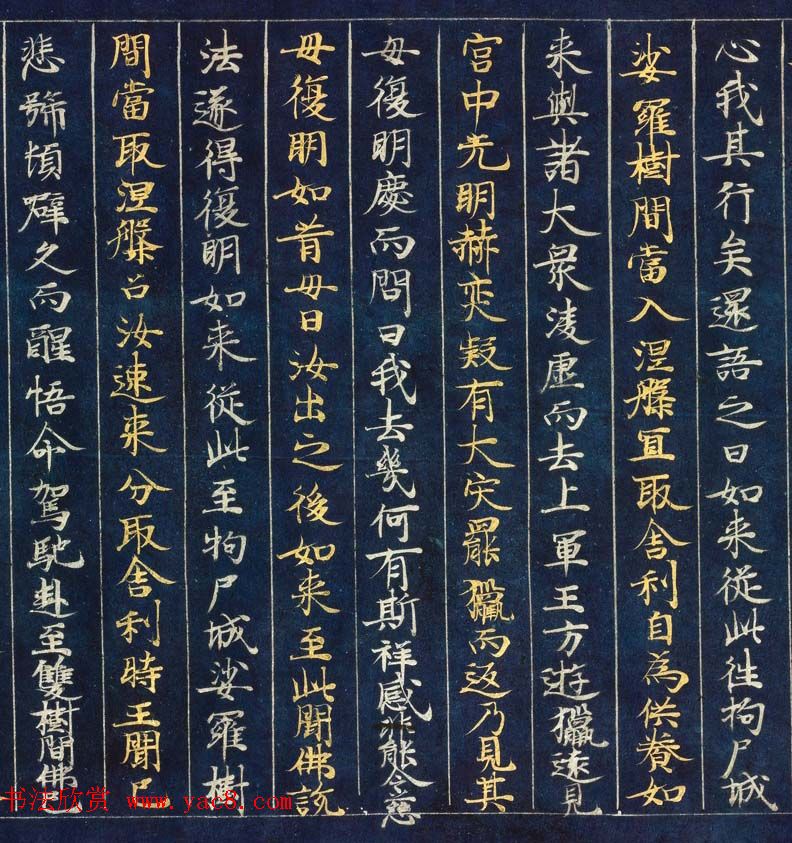 心我其行矣還語之曰如来從此往拘尸城
娑羅樹間當入涅槃宜取舍利自為供養如
来與諸大衆淩虛而去上軍王方遊獵遠見
宮中光明赫弈疑有大灾罷獵而返乃見其
母復明慶而問曰我去幾何有斯祥感能令慈
母復明如昔母曰汝出之後如来至此聞佛說
法遂得復明如来從此至拘尸城娑羅樹
間當取涅槃召汝速来分取舍利時王聞已
悲號頓躃久而醒悟命駕馳赴至雙樹間佛
书法欣赏 www.yac8.com